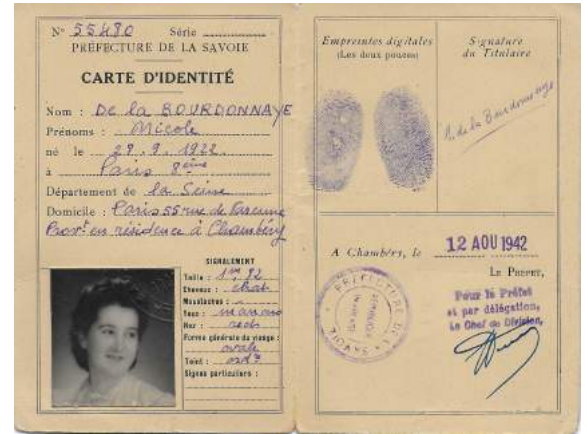 N° 55480 Série
PRÉFECTURE DE LA SAVOIE
CARTE D'IDENTITÉ
Nom : De la BOURDONNAYE
Prénoms : Nicole
né le 29.9.1922
à Paris 8ème
Département de la Seine
Domicile : Paris 55 rue de
Provt en résidence à Chambéry
SIGNALEMENT
Taille : 1m,
Cheveux : chat
Moustaches :
Yeux : marrons
Nez : rect
Forme générale du visage :
ovale
Teint :
Signes particuliers :
Empreintes digitales
(Les deux pouces)
Signature
du Titulaire
N. de la Bourdonnaye
A Chambéry, le 12 AOU 1942
LE PREFET,
Pour le Préfet
et par délégation,
Le Chef de Division,
PRÉFECTURE DE LA SAVOIE